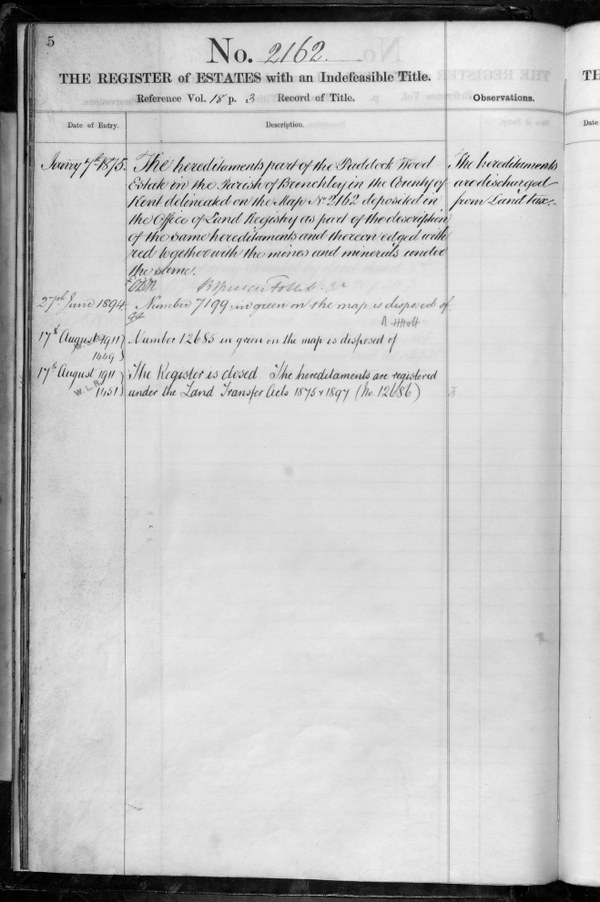 5
No. 2162
THE REGISTER of ESTATES with an Indefeasible Title.
Reference Vol. 18 p. 3 Record of Title.
Observations.
Date of Entry.
Description.
7th 1875.
The hereditaments part of the Paddock Wood
Estate in the Parish of Brenchley in the County of
Kent delineated on the Map No 2162 deposited in
the Office of Land Registry as part of the description
of the same hereditaments and thereon edged with
red together with the mines and minerals under
the same.
The hereditaments
are discharged
from Land tax.
27th June 1894
Number 7199 in green on the map is disposed of
17th August 1911
1449
Number 12685 in green on the map is disposed of
17th August 1911
1451
The Register is closed. The hereditaments are registered
under the Land Transfer Acts 1875 & 1897 (No. 12686)
TH
Date